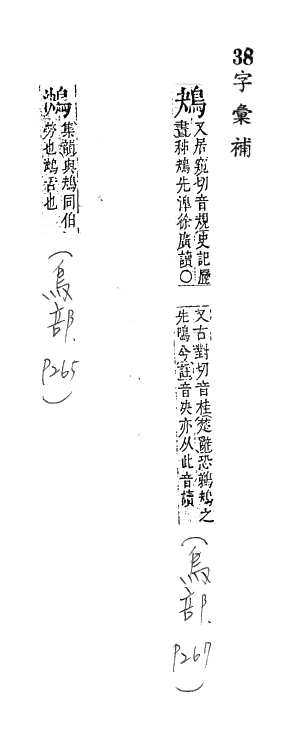 38字彙補
鴂
又居窺切音規史記歷
書秭鴂先滜徐廣讀○
又古對切音桂楚離恐鶗鴂之
先鳴今註音決亦从此音讀
(鳥部. P267)
集韻與鴂同伯
勞也鵊舌也
(鳥部. P265)